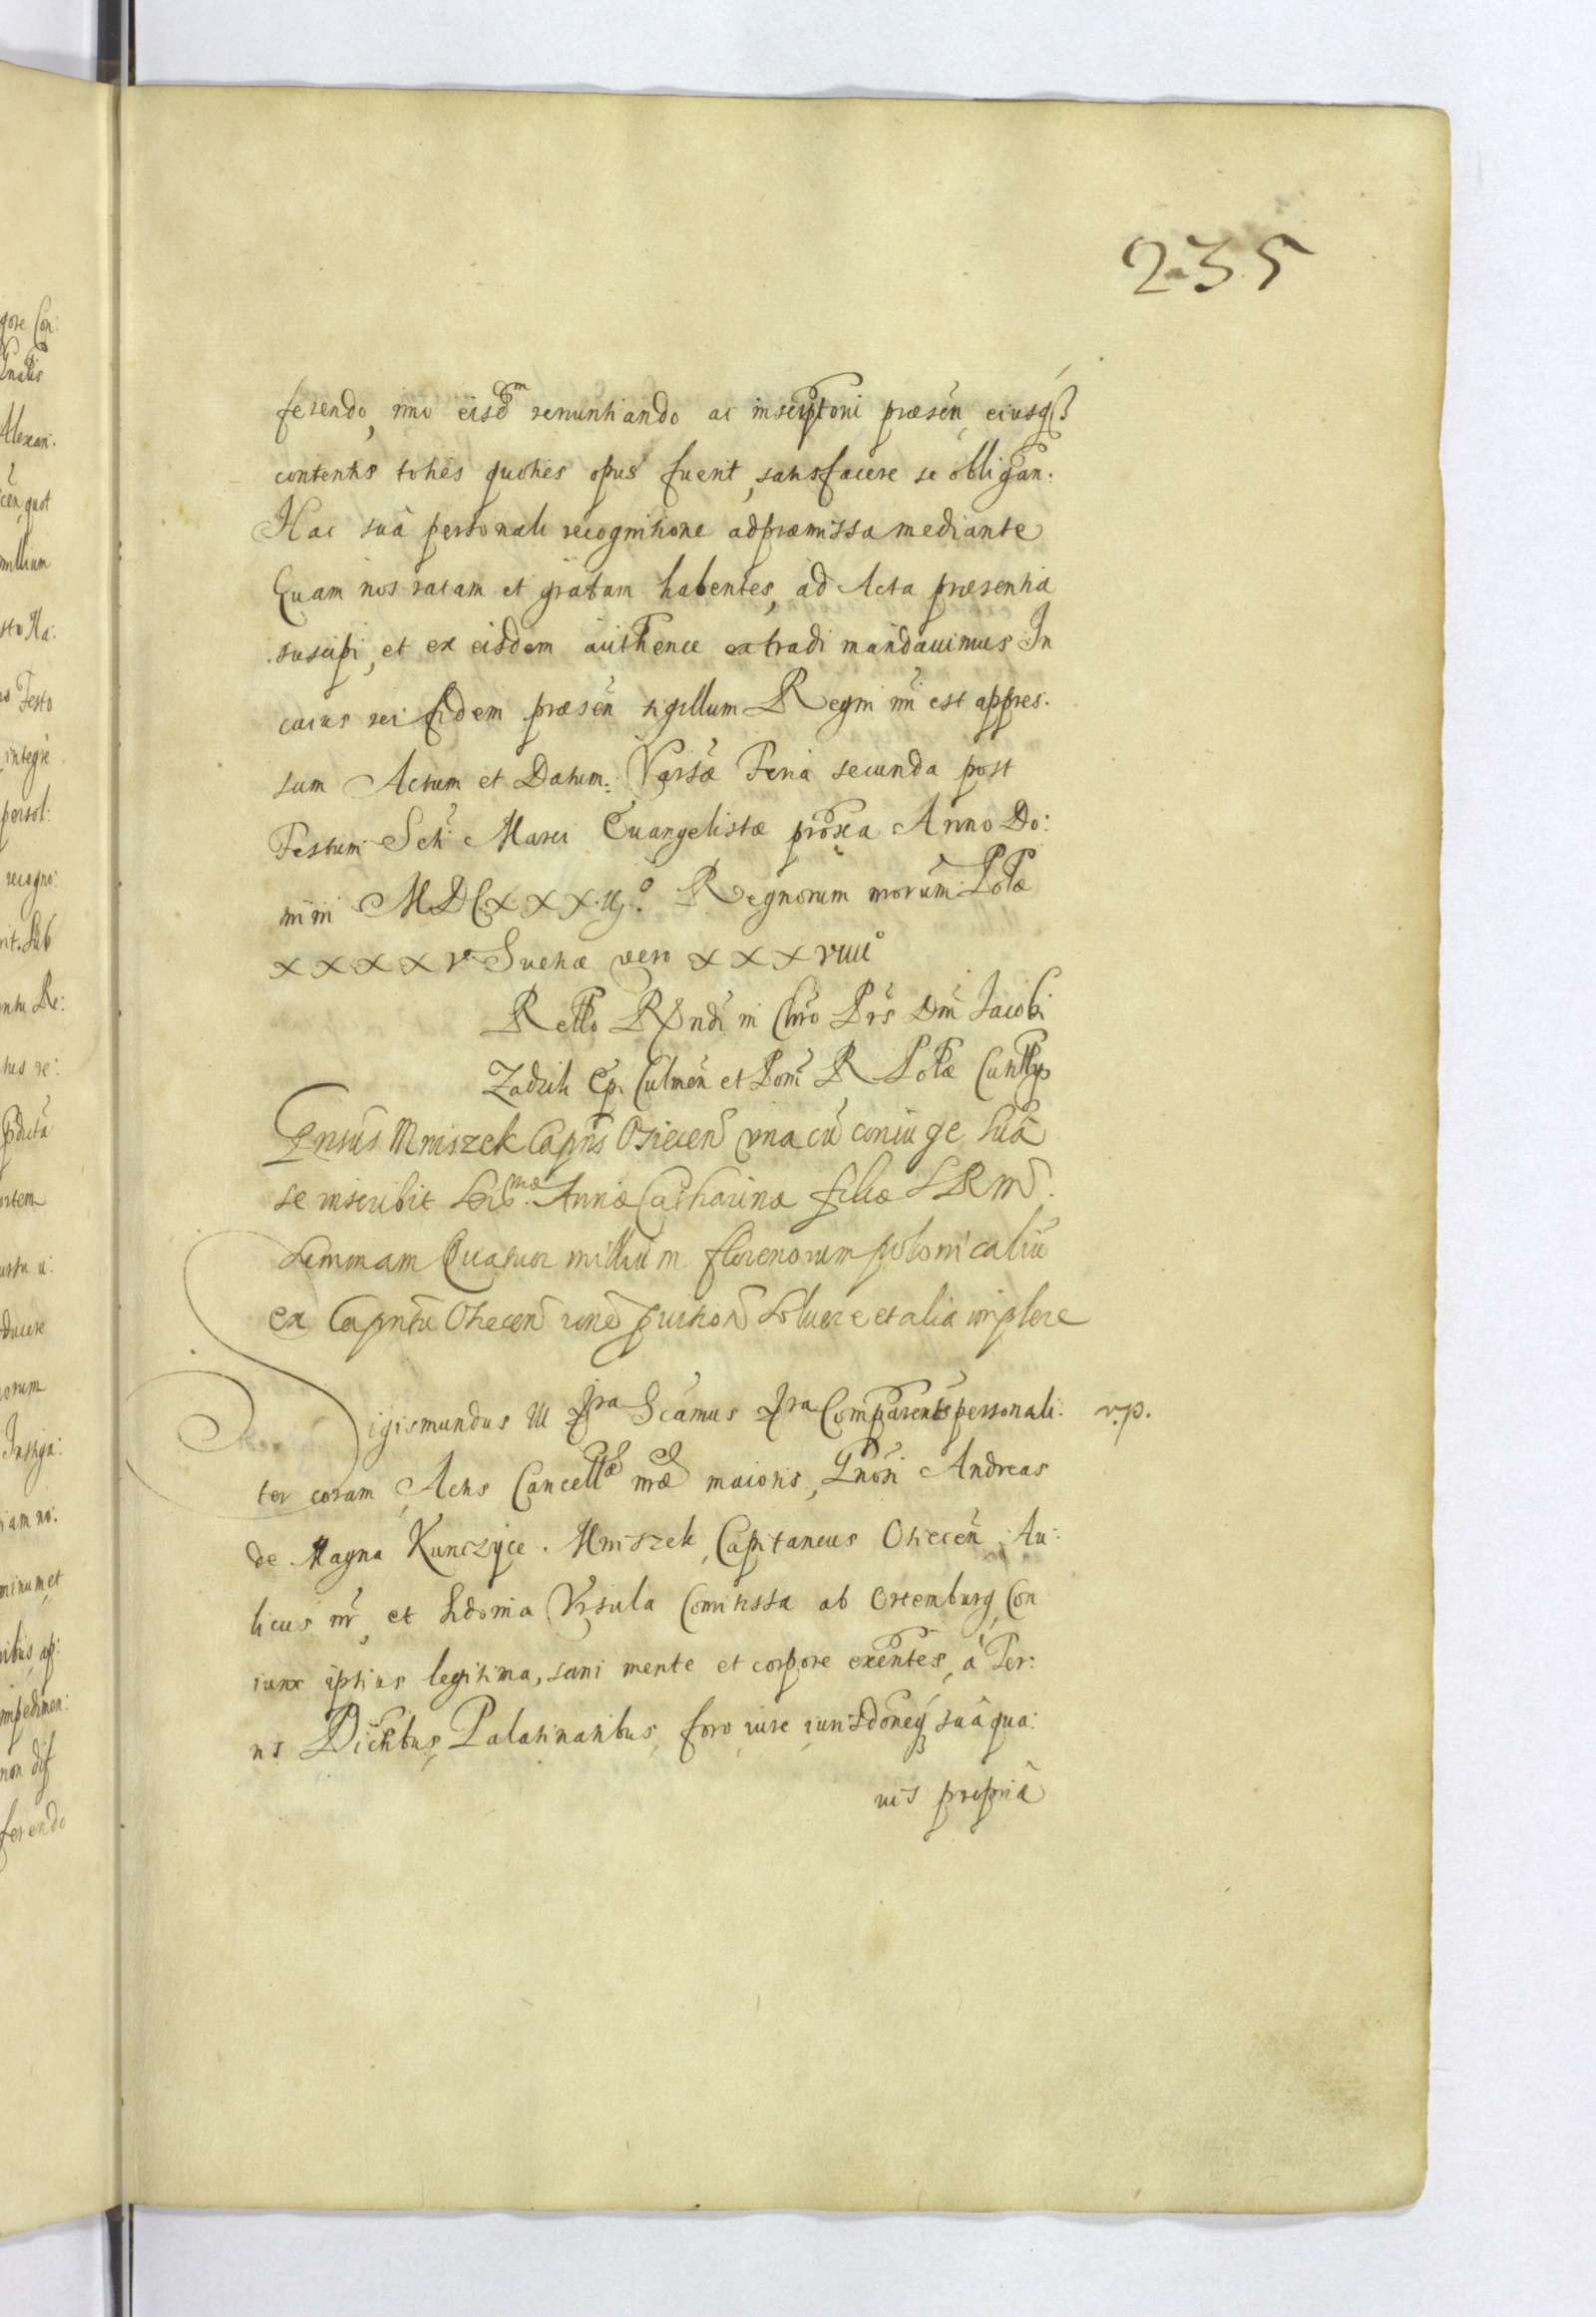 235
ferendo, imo eisdm renuntiando ac inscriptoni præsen̄ eiusq3
contentis toties quoties opus fuerit, satisfacere se obligan:
Hac suâ personali recognitione ad præmissa mediante
Quam nos ratam et gratam habentes, ad Acta præsentia
suscipi, et ex eisdem authentice extradi mandauimus In
cuius rei fidem præsen̄ sigillum Regni nri est appres.
sum Actum et Datum: Varsæ Feria secunda post
Festum Scti Marci Euangelistæ proxa Anno Do:
mini MDCXXXij.° Regnorum nrorum Polæ
XXXXV Suetiæ vero XXXviiii°
Rello Rndi in Chro Pris Dni Jacobi
Zadzik Ep. Culmen̄ et Pom̄ R Polæ Cancllrÿ
Gnsus Mniszek Capnus Osiecen̄ vna cū coniuge suâ
se inscribit Sermæ Annæ Catharinæ filiæ S R M.
Summam Quatuor millium florenorum polonicaliū
ex Capntu Osiecen̄ rōne puision̄ Soluere et alia implere
Sigismundus III Dra Scamus Qra Comparentes personali: r.p.
ter coram Actis Cancellæ nræ maioris, Gnosi Andreas
de Magna Kunczyce. Mniszek, Capitaneus Osiecen̄, Au:
licus nr̄, et Sidonia Vrsula Comitissa ab Ortemburg, Con
iunx iptius legitima, sani mente et corpore exentes, à Ter:
ris Dictibus, Palatinatibus, foro iure iurisdoneq3 suâ qua:
uis propriâ
gore Con:
Alexan:
cen̄, quot
millium
sto Ma:
ro Festo
integrè
persol:
recogno:
rit. Sub
ntu Re:
tus re:
pdicta
ortem
ducere
orum
Instiga:
iam no:
minum, et
ribus, ap:
impedimen:
non dif
ferendo